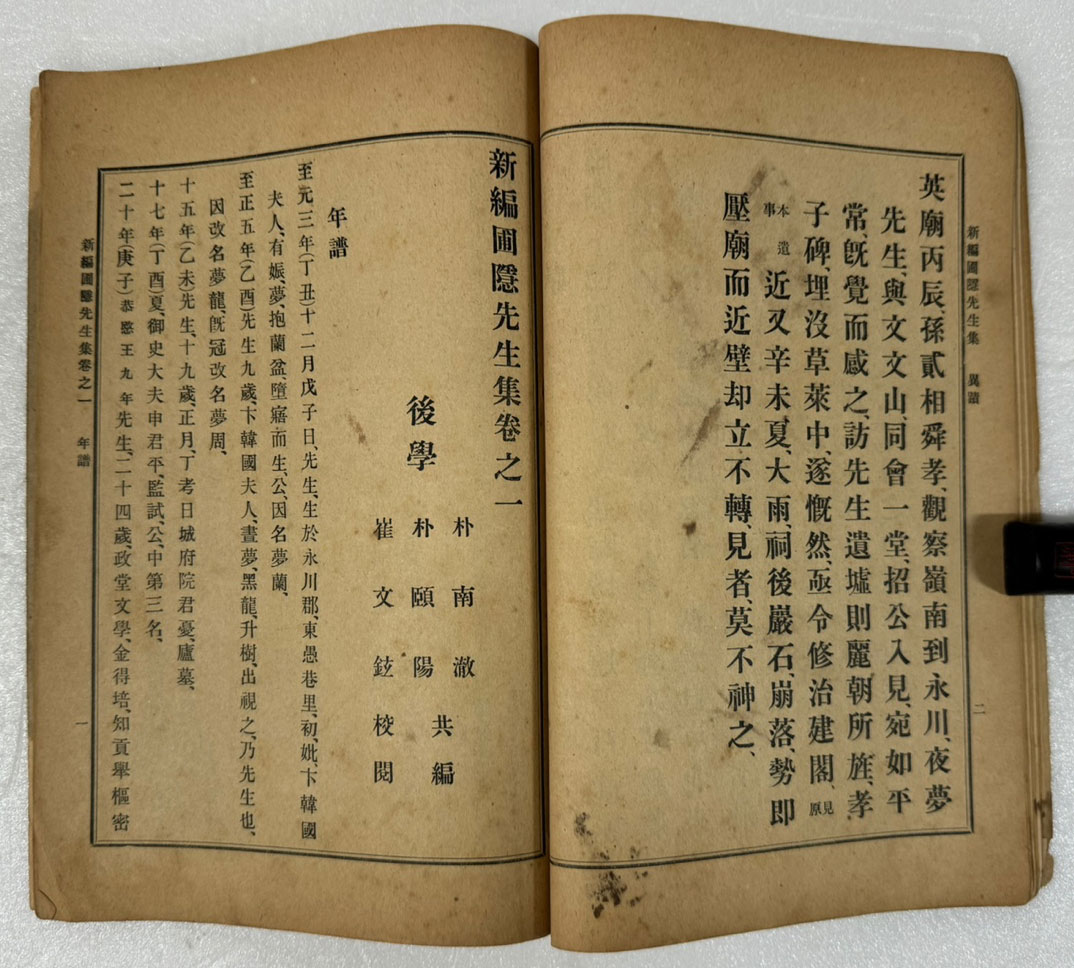 新編圃隱先生集 異蹟 二
英廟丙辰、孫貳相舜孝、觀察嶺南到永川、夜夢
先生、與文文山、同會一堂、招公入見、宛如平
常、旣覺而感之、訪先生遺墟則麗朝所旌、孝
子碑、埋沒草萊中、遂慨然、亟令修治建閣、見原
本遺事 近又辛未、夏、大雨、祠後巖石、崩落、勢卽
壓廟而近壁却立不轉、見者、莫不神之、
新編圃隱先生集卷之一
後學
朴南澈
朴頤陽 共編
崔文鉉 校閱
年譜
至元三年(丁丑)十二月戊子日、先生、生於永川郡、東愚巷里、初、妣、卞韓國
夫人、有娠、夢、抱蘭盆、墮寤而生、公、因名夢蘭、
至正五年(乙酉)先生九歲、卞韓國夫人、晝夢、黑龍、升樹、出視之、乃先生也、
因改名夢龍、旣冠改名夢周、
十五年(乙未)先生、十九歲、正月、丁考日城府院君憂、廬墓、
十七年(丁酉)夏、御史大夫申君平、監試、公、中第三名、
二十年(庚子)恭愍王九年先生、二十四歲、政堂文學、金得培、知貢舉樞密
新編圃隱先生集卷之一 年譜 一